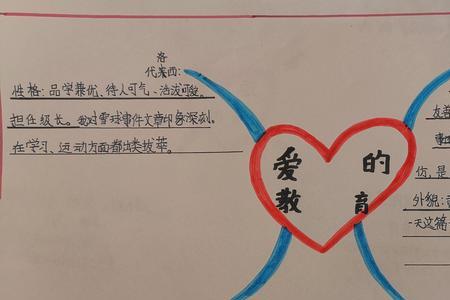 洛
代莱西:
性格: 品学兼优、待人可气、活泼可爱。
担任级长。我对雪球事件文章印象深刻。
在学习、运动方面都出类拔萃。
爱的
教育
友善
事
伤,是
外貌:
一天这篇